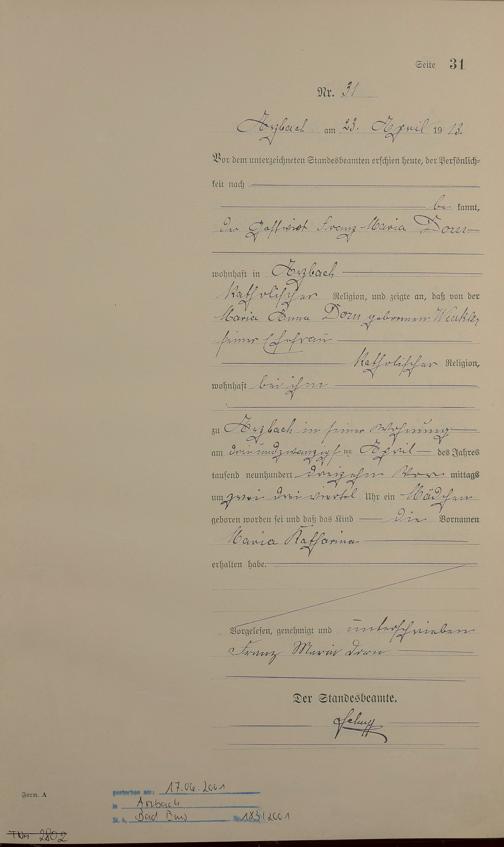 Seite 31
Nr. 31
Arzbach am 23. April 1913.
Vor dem unterzeichneten Standesbeamten erschien heute, der Persönlich-
keit nach
be kannt,
der Gastwirt Franz Maria Dorn
wohnhaft in Arzbach
katholischer Religion, und zeigte an, daß von der
Maria Anna Dorn geborenen
seiner Ehefrau
katholischer Religion,
wohnhaft bei ihm
zu Arzbach in seiner Wohnung
am dreiundzwanzigsten April des Jahres
tausend neunhundert dreizehn Vor mittags
um zwei drei viertel Uhr ein Mädchen
geboren worden sei und daß das Kind die Vornamen
Maria Katharina
erhalten habe.
Vorgelesen, genehmigt und unterschrieben
Franz Maria Dorn
Der Standesbeamte.
Form. A
gestorben am: 17.06.2001
in Arzbach
St. A. Bad Ems Nr. 183/2001
2802